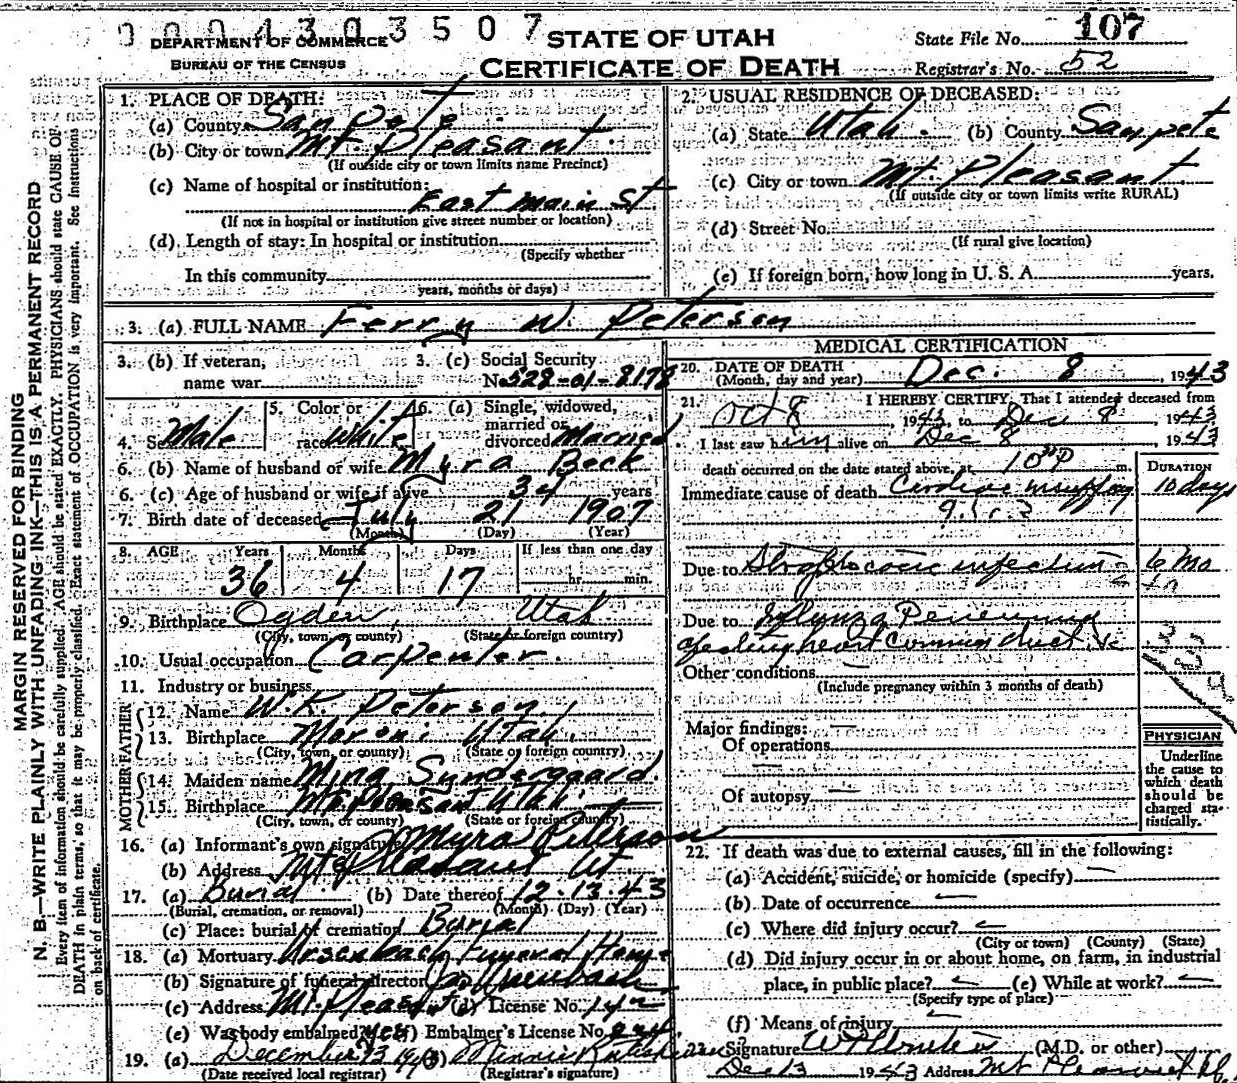 0004303507
DEPARTMENT OF COMMERCE
BUREAU OF THE CENSUS
STATE OF UTAH
CERTIFICATE OF DEATH
State File No. 107
Registrar's No. 52
MARGIN RESERVED FOR BINDING
N. B.—WRITE PLAINLY WITH UNFADING INK—THIS IS A PERMANENT RECORD
Every item of information should be carefully supplied. AGE should be stated EXACTLY. PHYSICIANS should state CAUSE OF
DEATH in plain terms, so that it may be properly classified. Exact statement of OCCUPATION is very important. See Instructions
on back of certificate.
1. PLACE OF DEATH:
(a) County San Pete
(b) City or town Mt. Pleasant
(If outside city or town limits name Precinct)
(c) Name of hospital or institution:
East Main St
(If not in hospital or institution give street number or location)
(d) Length of stay: In hospital or institution
(Specify whether
In this community
years, months or days)
2. USUAL RESIDENCE OF DECEASED:
(a) State Utah. (b) County Sanpete
(c) City or town Mt. Pleasant
(If outside city or town limits write RURAL)
(d) Street No.
(If rural give location)
(e) If foreign born, how long in U. S. A. years.
3. (a) FULL NAME Ferry W. Peterson
3. (b) If veteran, name war
3. (c) Social Security
No. 528-01-8178
4. Sex Male
5. Color or race White
6. (a) Single, widowed, married or divorced Married
6. (b) Name of husband or wife Myra Beck
6. (c) Age of husband or wife if alive 34 years
7. Birth date of deceased July 21 1907
(Month) (Day) (Year)
8. AGE Years Months Days If less than one day
36 4 17 hr. min.
9. Birthplace Ogden, Utah
(City, town, or county) (State or foreign country)
10. Usual occupation Carpenter.
11. Industry or business
FATHER
12. Name W.K. Peterson
13. Birthplace Moroni Utah.
(City, town, or county) (State or foreign country)
MOTHER
14. Maiden name Mina Syndergaard
15. Birthplace Mt Pleasant Utah.
(City, town, or county) (State or foreign country)
16. (a) Informant's own signature Myra Peterson
(b) Address Mt Pleasant Ut
17. (a) Burial (b) Date thereof 12-13-43
(Burial, cremation, or removal) (Month) (Day) (Year)
(c) Place: burial or cremation Burial
18. (a) Mortuary Ursenbach Funeral Home
(b) Signature of funeral director Ursenbach
(c) Address Mt Pleasant (d) License No. 142
(e) Was body embalmed? yes (f) Embalmer's License No. 224
19. (a) December 13 1943 (b) Minnie
(Date received local registrar) (Registrar's signature)
MEDICAL CERTIFICATION
20. DATE OF DEATH
(Month, day and year) Dec. 8, 1943
21. I HEREBY CERTIFY, That I attended deceased from
Oct 8, 1943 to Dec 8, 1943
I last saw him alive on Dec 8, 1943
death occurred on the date stated above, at 10 P m.
DURATION
Immediate cause of death Cardiac 10 days
Due to infection 6 mo
Due to
affecting heart Common duct
Other conditions
(Include pregnancy within 3 months of death)
Major findings:
Of operations
Of autopsy
PHYSICIAN
Underline
the cause to
which death
should be
charged sta-
tistically.
22. If death was due to external causes, fill in the following:
(a) Accident, suicide, or homicide (specify)
(b) Date of occurrence
(c) Where did injury occur?
(City or town) (County) (State)
(d) Did injury occur in or about home, on farm, in industrial
place, in public place? (e) While at work?
(Specify type of place)
(f) Means of injury
23. Signature (M.D. or other)
Dec 13 1943 Address Mt Pleasant